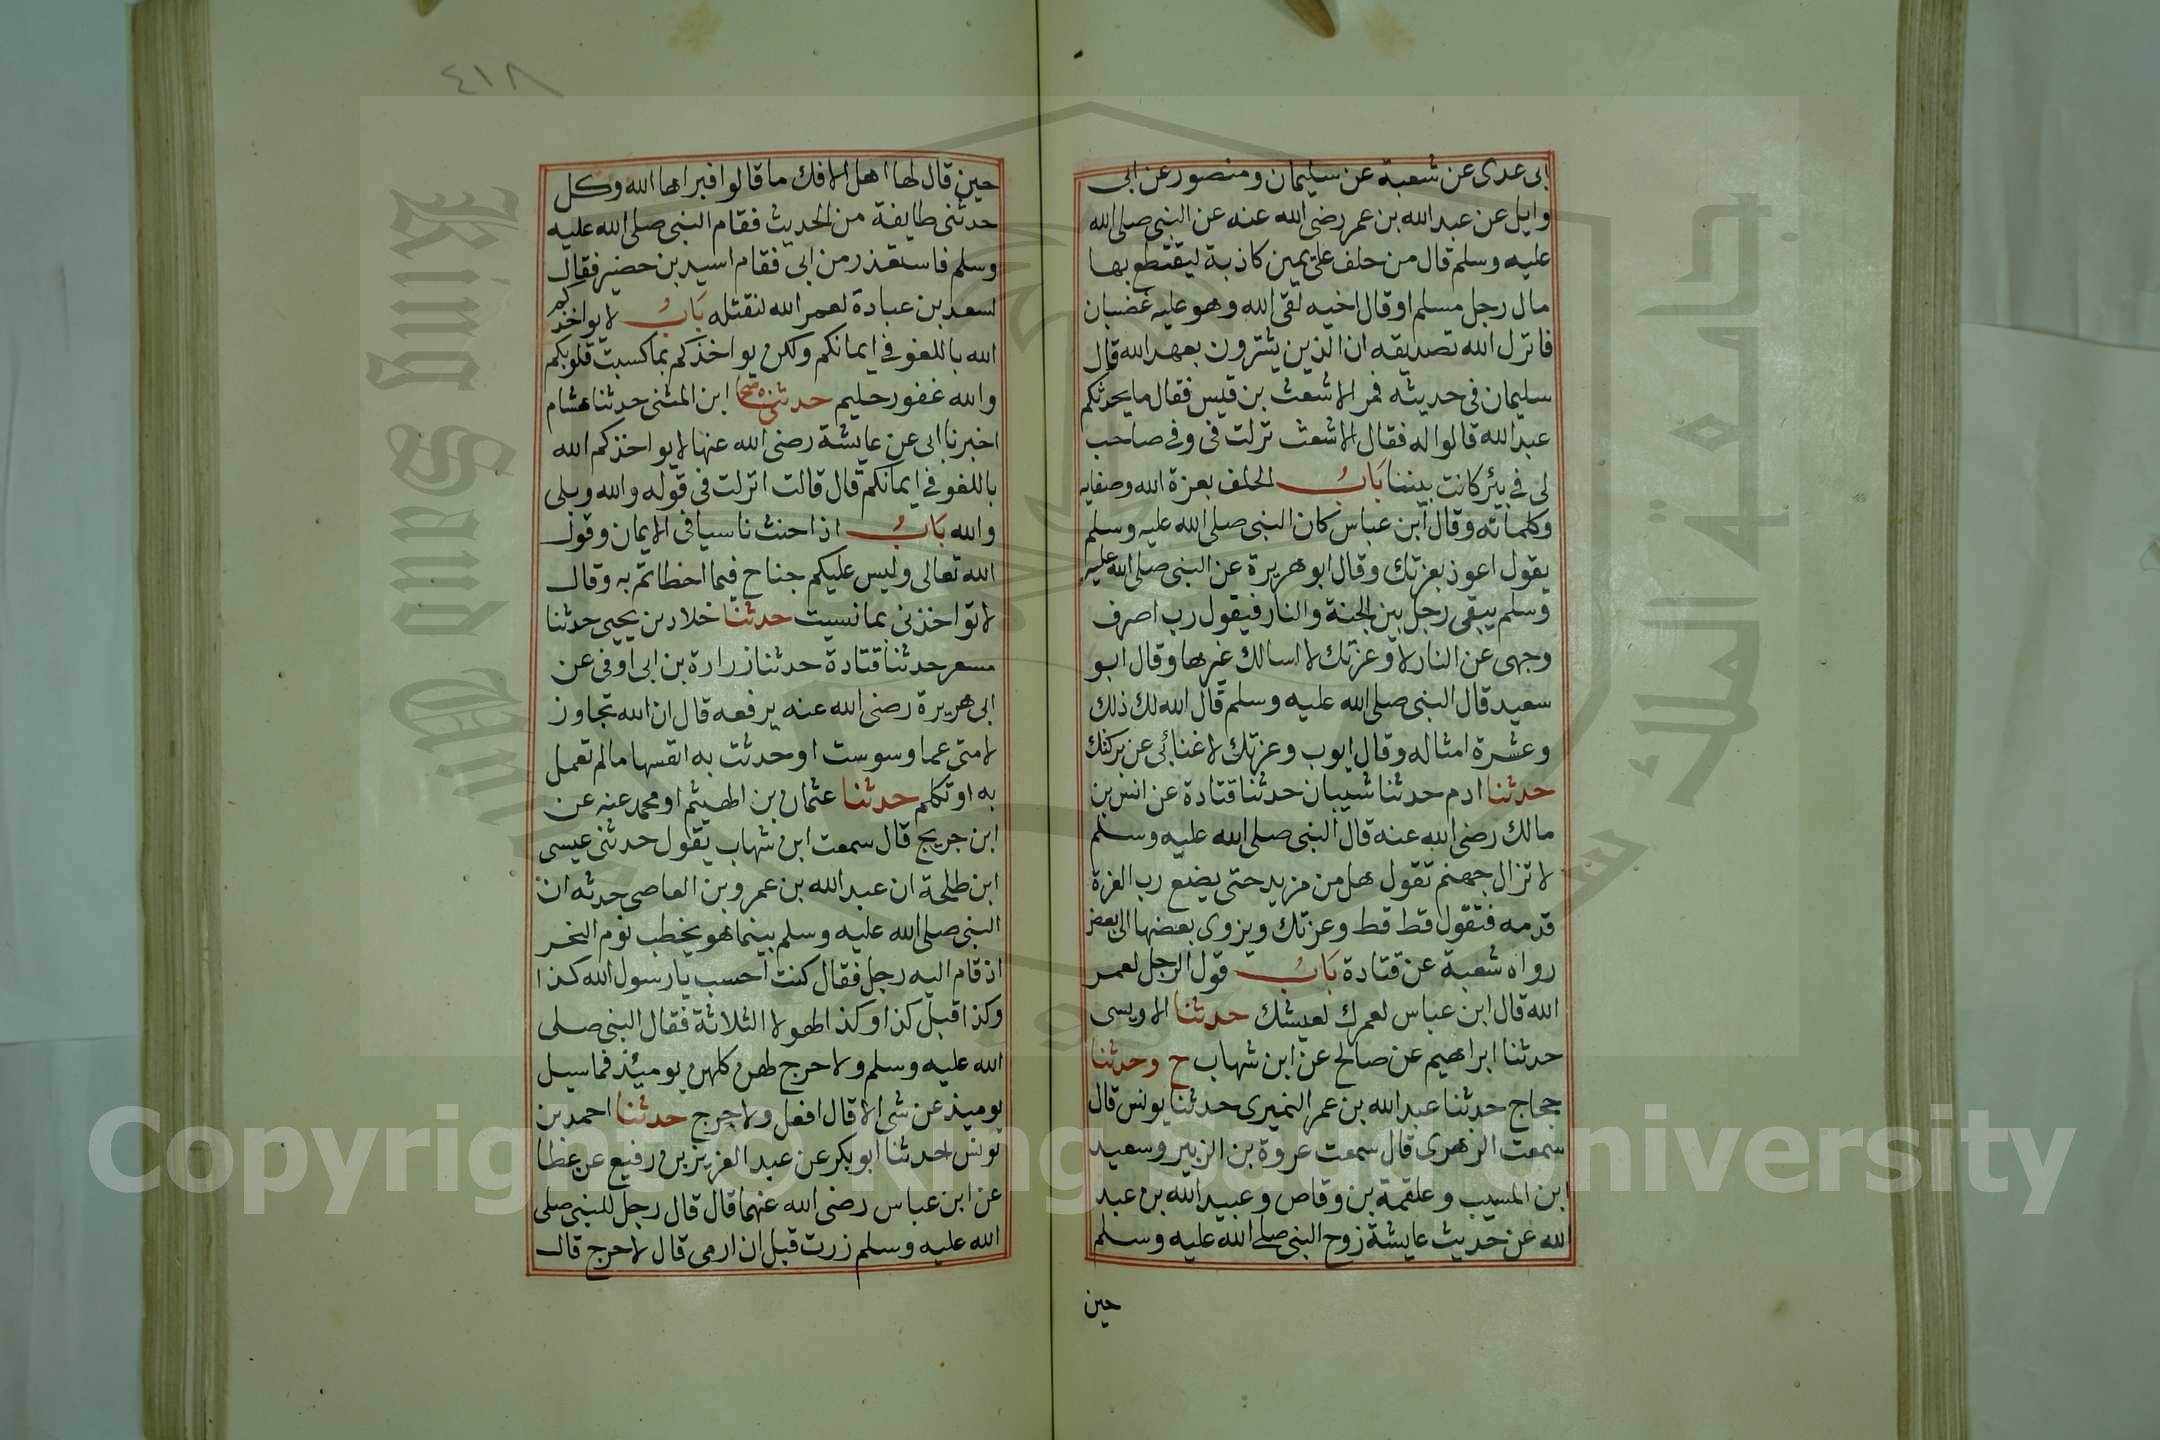 ابى عدى عن شعبة عن سليمان ومنصور عن ابى
وايل عن عبد الله بن عمر رضى الله عنه عن النبى صلى الله
عليه وسلم قال من حلف على يمين كاذبة ليقتطع بها
مال رجل مسلم او قال اخيه لقى الله وهو عليه غضبان
فانزل الله تصديقه ان الذين يشترون بعهد الله قال
سليمان فى حديثه فمر الاشعث بن قيس فقال ما يحدثكم
عبد الله قالوا له فقال الاشعث نزلت فى وفى صاحب
لى فى بئر كانت بيننا باب الحلف بعزة الله وصفاته
وكلماته وقال ابن عباس كان النبى صلى الله عليه وسلم
يقول اعوذ بعزتك وقال ابو هريرة عن النبى صلى الله عليه
وسلم يبقى رجل بين الجنة والنار فيقول رب اصرف
وجهى عن النار لا وعزتك لا اسالك غيرها وقال ابو
سعيد قال النبى صلى الله عليه وسلم قال الله لك ذلك
وعشرة امثاله وقال ايوب وعزتك لا غنائى عن بركتك
حدثنا ادم حدثنا شيبان حدثنا قتادة عن انس بن
مالك رضى الله عنه قال النبى صلى الله عليه وسلم
لا تزال جهنم تقول هل من مزيد حتى يضع رب العزة
قدمه فتقول قط قط وعزتك ويزوى بعضها الى بعض
رواه شعبة عن قتادة باب قول الرجل لعمر
الله قال ابن عباس لعمرك لعيشك حدثنا الاويسى
حدثنا ابراهيم عن صالح عن ابن شهاب ح وحدثنا
حجاج حدثنا عبد الله بن عمر النميرى حدثنا يونس قال
سمعت الزهرى قال سمعت عروة بن الزبير وسعيد
ابن المسيب وعلقمة بن وقاص وعبيد الله بن عبد
الله عن حديث عايشة زوج النبى صلى الله عليه وسلم
حين
٤١٨
حين قال لها اهل الافك ما قالوا فبراها الله وكل
حدثنى طايفة من الحديث فقام النبى صلى الله عليه
وسلم فاستعذر من ابى فقام اسيد بن حضير فقال
لسعد بن عبادة لعمر الله لنقتلنه باب لا يواخذكم
الله باللغو فى ايمانكم ولكن يواخذكم بما كسبت قلوبكم
والله غفور حليم حدثنى ابن المثنى حدثنا هشام
اخبرنا ابى عن عايشة رضى الله عنها لا يواخذكم الله
باللغو فى ايمانكم قال قالت انزلت فى قوله والله وبلى
والله باب اذا حنث ناسيا فى الايمان وقول
الله تعالى وليس عليكم جناح فيما اخطاتم به وقال
لا تواخذنى بما نسيت حدثنا خلاد بن يحيى حدثنا
مسعر حدثنا قتادة حدثنا زرارة بن ابى اوفى عن
ابى هريرة رضى الله عنه يرفعه قال ان الله تجاوز
لامتى عما وسوست او حدثت به انفسها ما لم تعمل
به او تكلم حدثنا عثمان بن الهيثم او محمد عنه عن
ابن جريج قال سمعت ابن شهاب يقول حدثنى عيسى
ابن طلحة ان عبد الله بن عمرو بن العاصى حدثه ان
النبى صلى الله عليه وسلم بينما هو يخطب يوم النحر
اذ قام اليه رجل فقال كنت احسب يا رسول الله كذا
وكذا قبل كذا وكذا لهولا الثلاثة فقال النبى صلى
الله عليه وسلم ولا حرج لهن كلهن يوميئذ فما سيل
يوميذ عن شى الا قال افعل ولا حرج حدثنا احمد بن
يونس حدثنا ابو بكر عن عبد العزيز بن رفيع عن عطا
عن ابن عباس رضى الله عنهما قال قال رجل للنبى صلى
الله عليه وسلم زرت قبل ان ارمى قال لا حرج قال
King Saud University
جامعة الملك سعود
Copyright © King Saud University